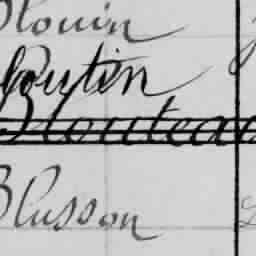 Blouin
Poutin
Blouteau
Blusson